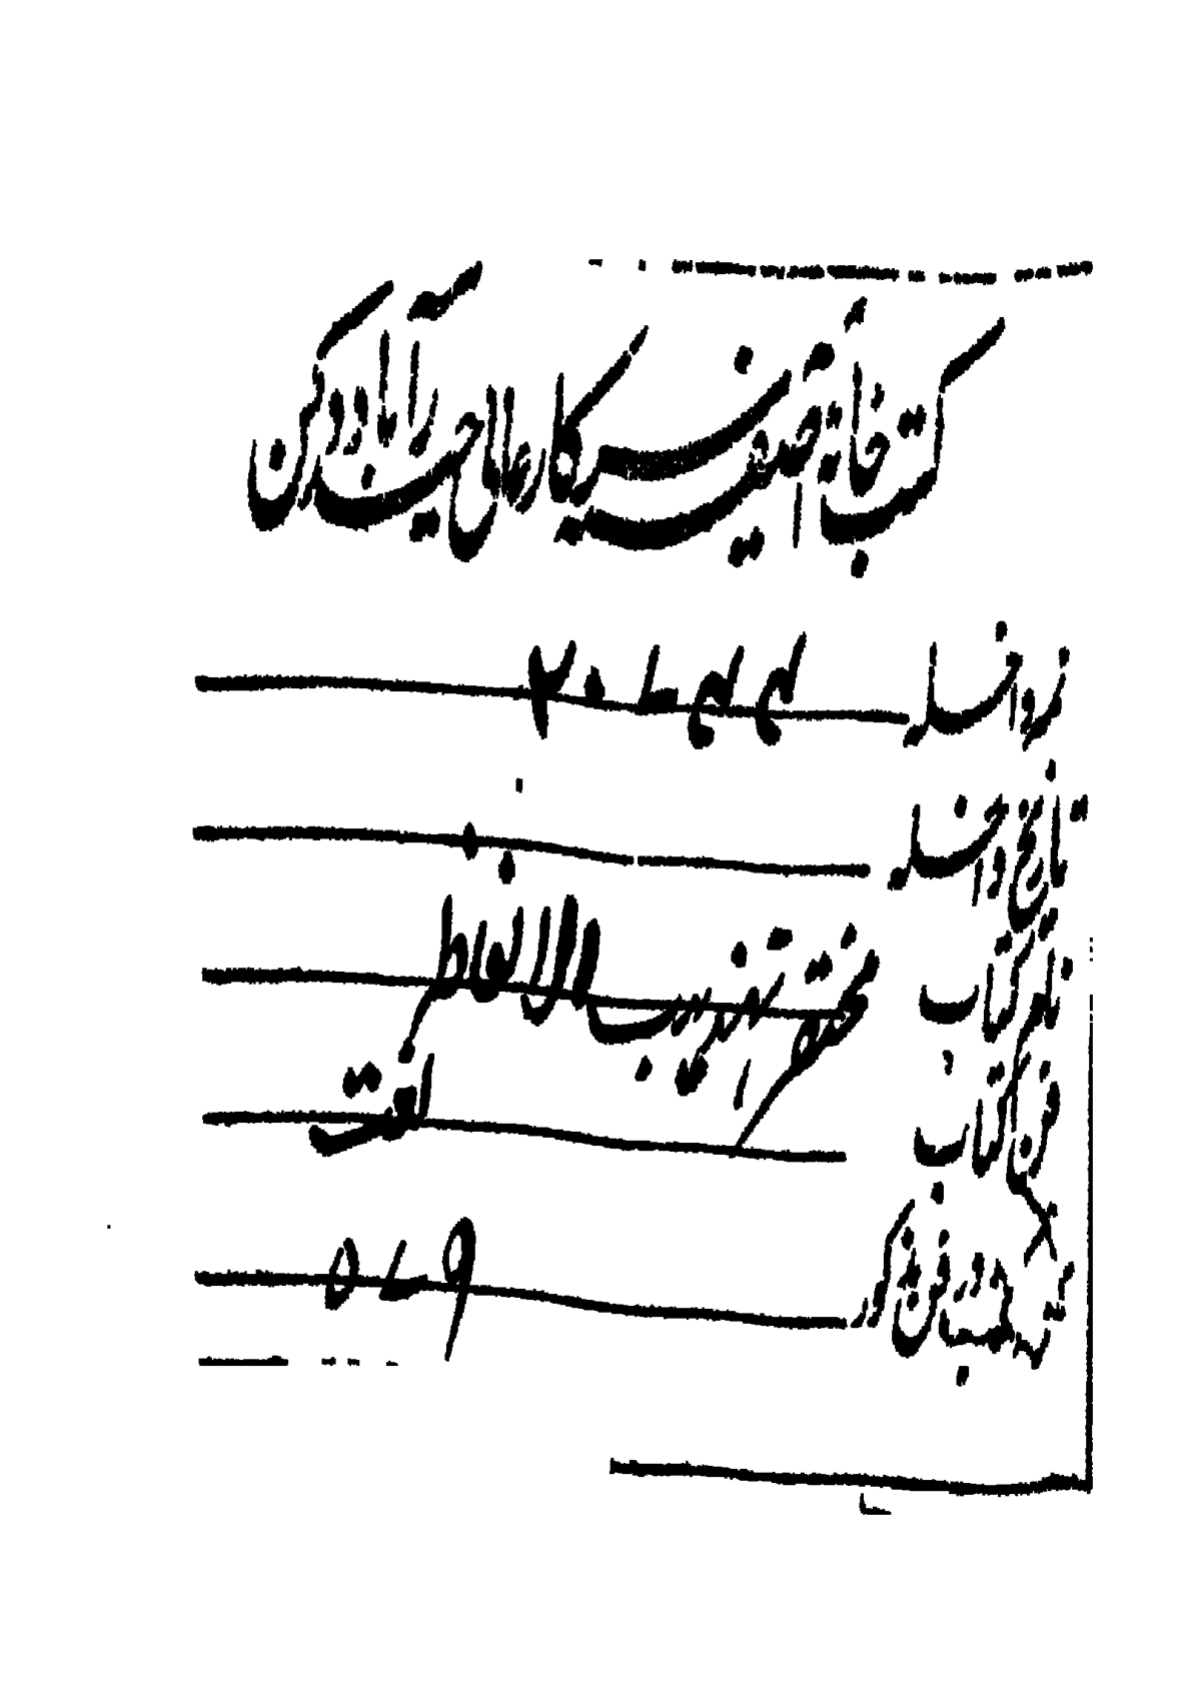 کتب خانہ آصفیہ سرکار عالی حیدرآباد دکن
نمبر داخلہ
تاریخ داخلہ
نام کتاب مختصر تہذیب الالفاظ
فن کتاب لغت
نمبر کتاب در فن مذکور